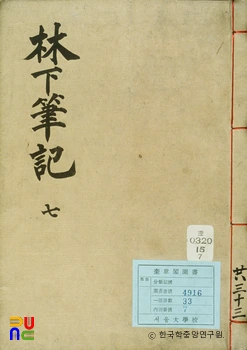 林下筆記
七
0320
15
7
奎章閣圖書
4916
33
7
서울大學校
共三十三
© 한국학중앙연구원